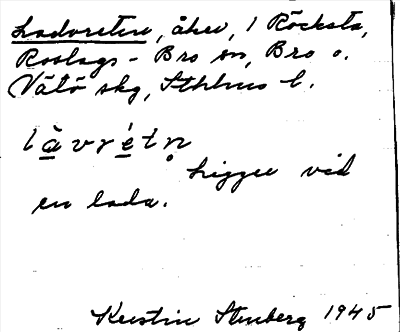 Ladvreten, åker, 1 Röcksta,
Roslags-Bro sn, Bro o.
Vätö skg, Sthlms l.
làvrétn̥
Ligger vid
en lada.
Kerstin Stenberg 1945